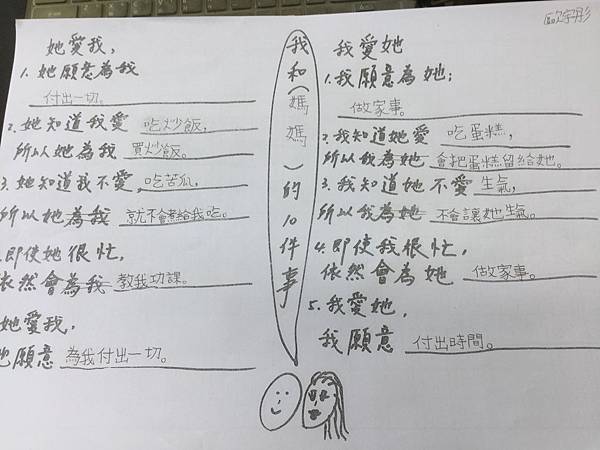 歐宇彤
我和(媽媽)的10件事
她愛我，
1. 她願意為我
付出一切。
2. 她知道我愛 吃炒飯，
所以她為我 買炒飯。
3. 她知道我不愛，吃苦瓜，
所以她為我 就不會煮給我吃。
即使她很忙，
依然會為我 教我功課。
她愛我，
她願意 為我付出一切。
我愛她
1. 我願意為她：
做家事。
2. 我知道她愛 吃蛋糕，
所以我為她 會把蛋糕留給她。
3. 我知道她不愛 生氣，
所以我為她 不會讓她生氣。
4. 即使我很忙，
依然會為她 做家事。
5. 我愛她，
我願意 付出時間。